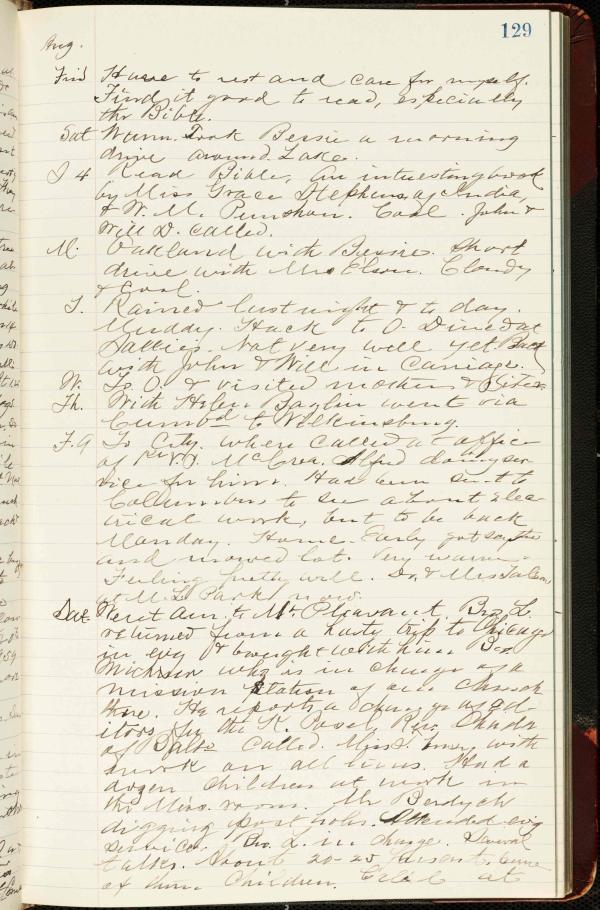 129
Aug.
Frid Have to rest and care for myself.
Find it good to read, especially
the Bible.
Sat Warm. Took Bessie a morning
drive around Lake.
S 4 Read Bible, An interesting book
by Miss Grace Stephens, of India,
& W. M. Punshon. Cool. John &
Will D. called.
M. Oakland with Bessie. Short
drive with Mrs Elson. Cloudy
& Cool.
T. Rained last night & to day.
Muddy. Hack to O. Dined at
Sallies. Not very well yet Back
with John & Will in Carriage.
W. To O. & visited mother &
Th. With Helen went via
Cumb'd to Wilkinsburg.
F. 9 To City. where called at office
of Rev. J. McCrea. Alfred doing ser
vice for him. Had been sent to
Columbus to see about elec
trical work, but to be back
Monday. Home. Early got scythe
and mowed lot. Very warm.
Feeling pretty well. Dr. & Mrs
at M. L. Park now.
Sat. Went Am. to Mt Pleasant. Bro. L.
returned from a hasty trip to Chicago
in evg & brought with him Bro
who is in charge of a
mission station of our Church
there. He reports a change of ed
itors for the K. Posel. Rev.
of called. Miss with
work on all lines. Had a
dozen children at work in
the Miss. rooms. Mr
digging post holes. Attended evg
service. Bro. L. in charge. Several
talks. About 20-25 present, some
of them Children. at